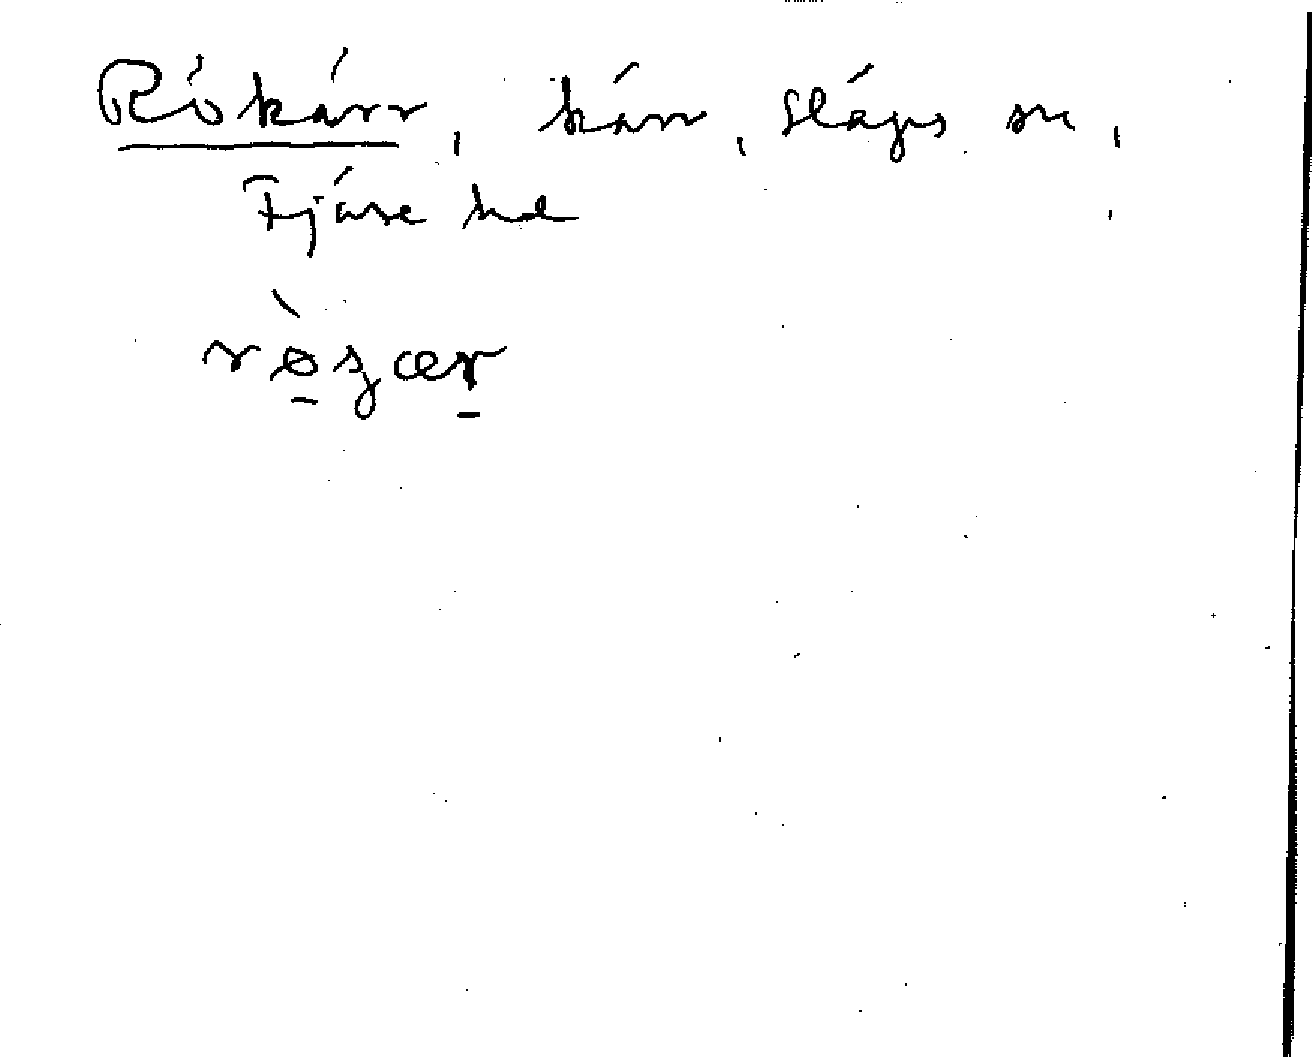 Rókárr, kárr, Slágs sn,
Fjäre hd
rò̱szæṟ